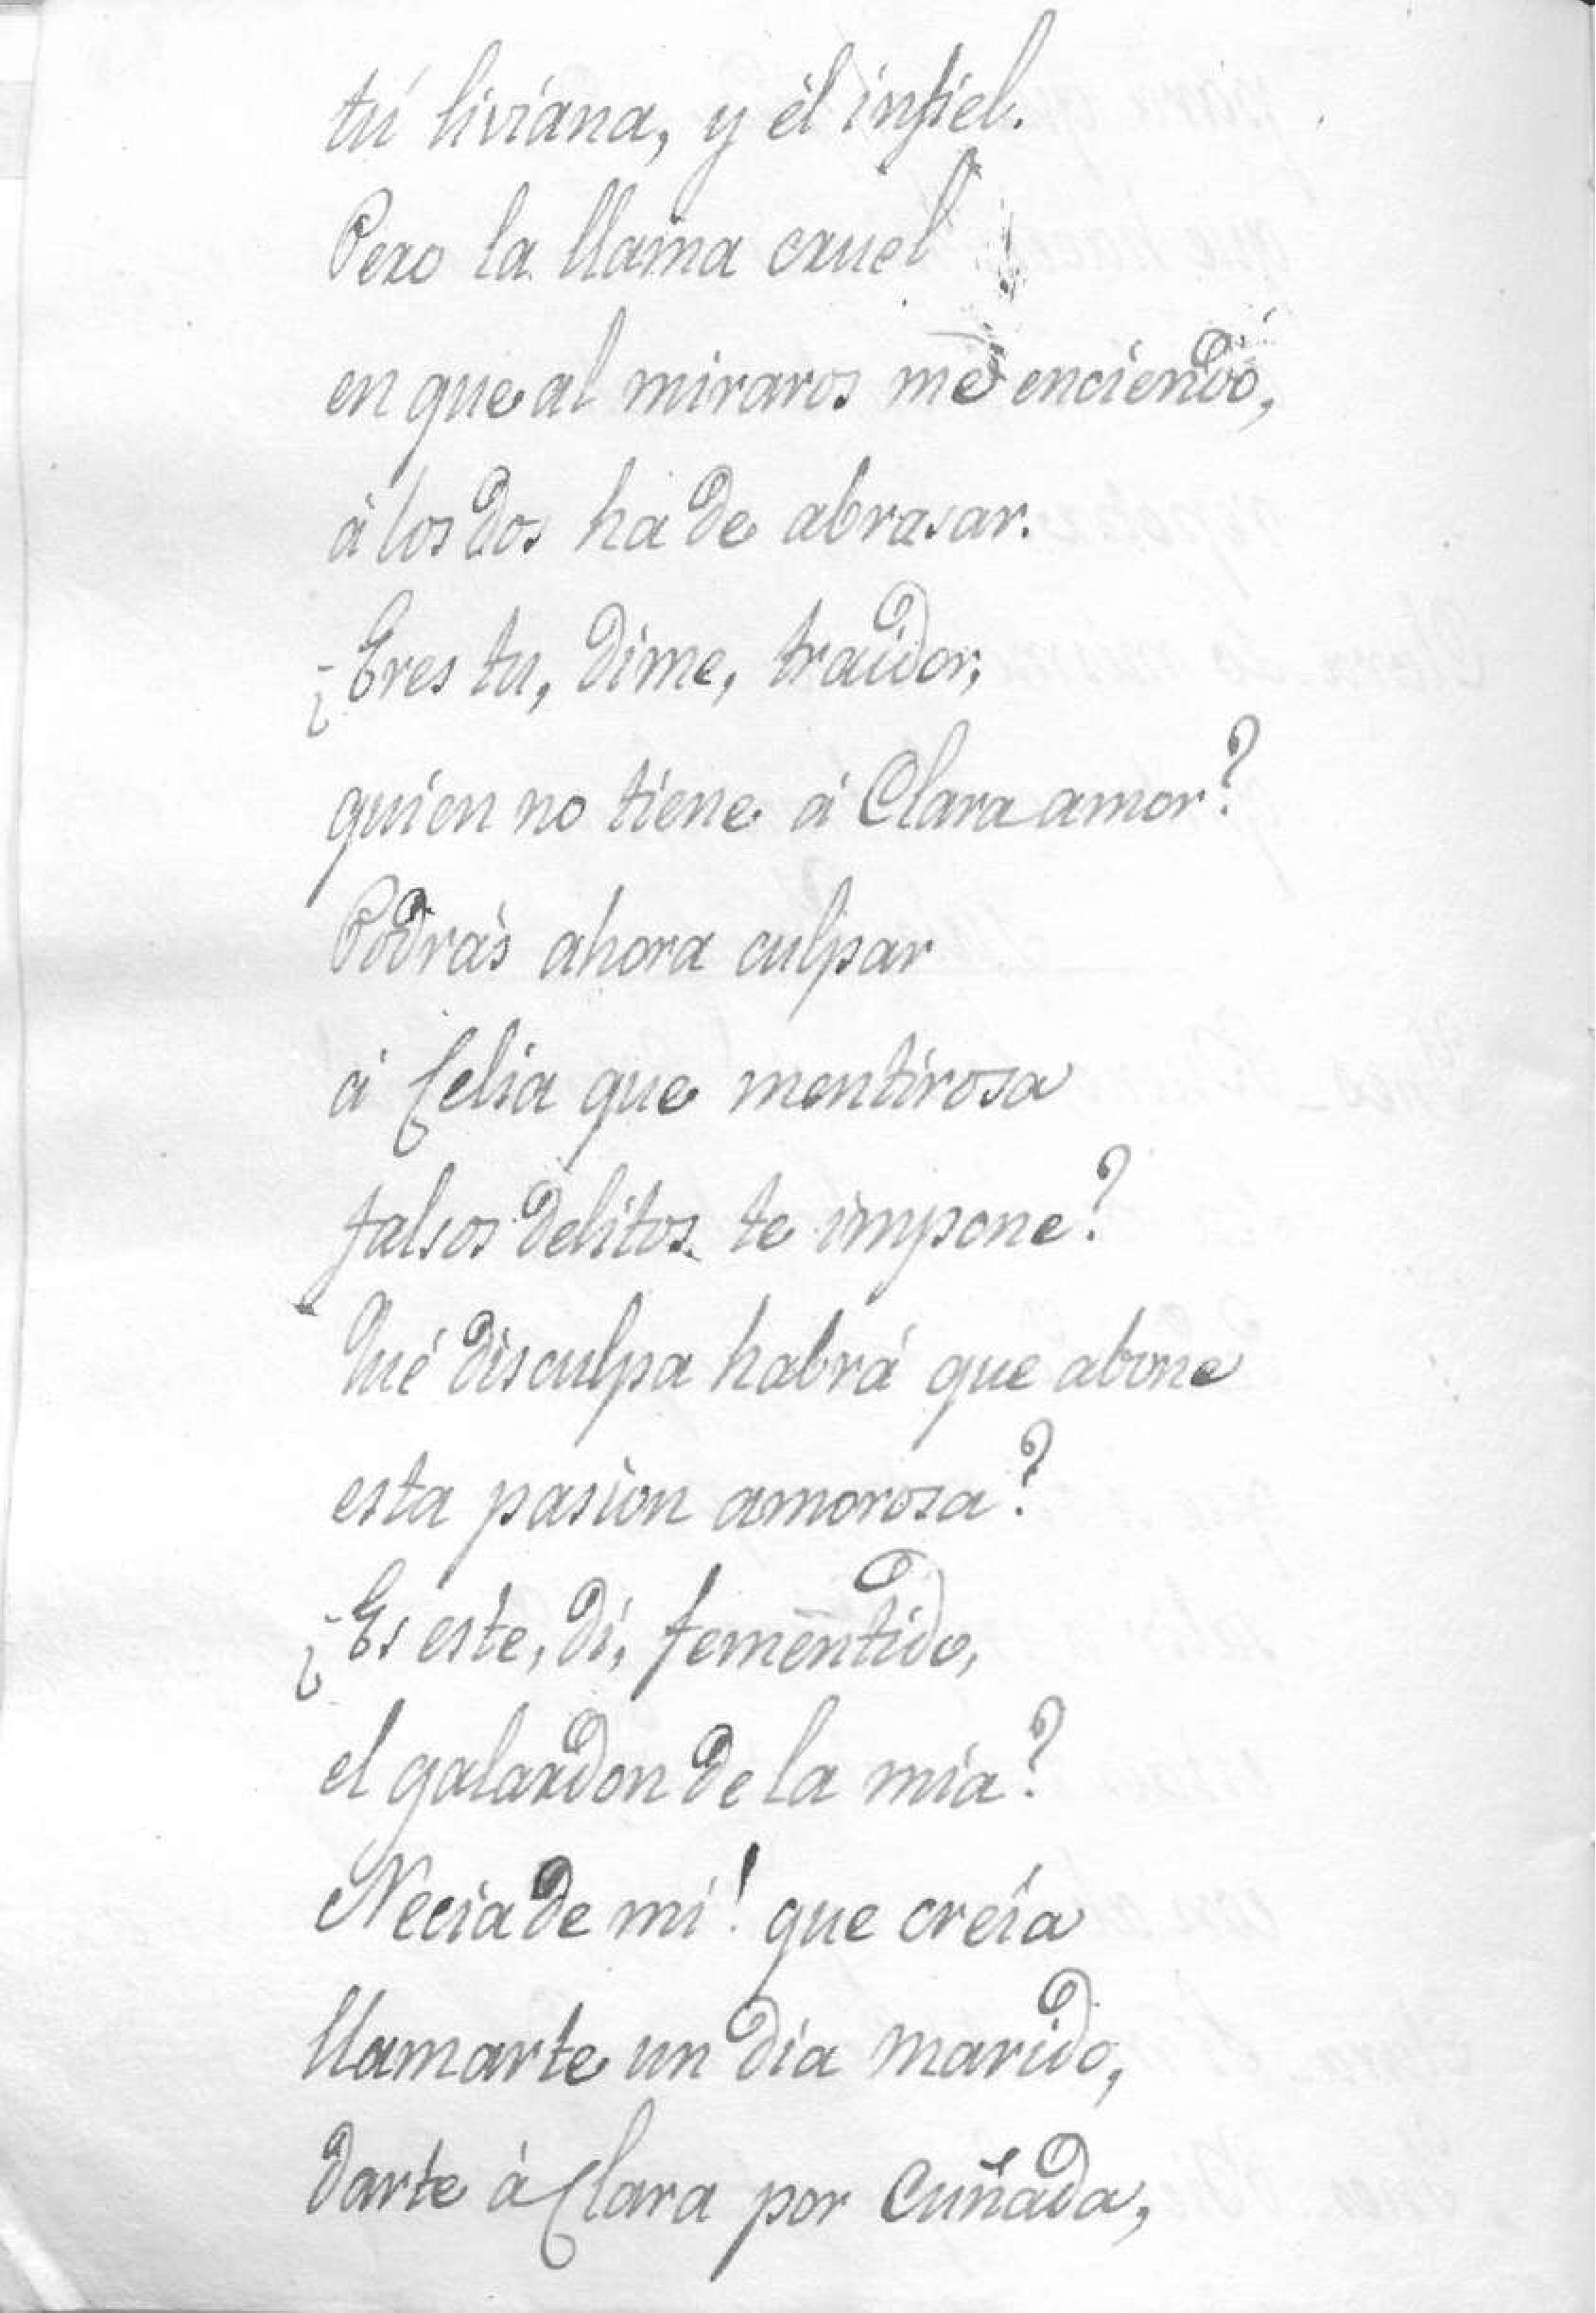 tú liviana, y él infiel.
Pero la llama cruel
en que al miraros me enciendo,
á los dos ha de abrasar.
¿Eres tu, dime, traidor,
quien no tiene á Clara amor?
Podrás ahora culpar
á Celia que mentirosa
falsos delitos te impone?
Qué disculpa habrá que abone
esta pasion amorosa?
¿Es este, dí, fementido,
el galardon de la mia?
Necia de mí! que creía
llamarte un dia marido,
darte á Clara por cuñada,